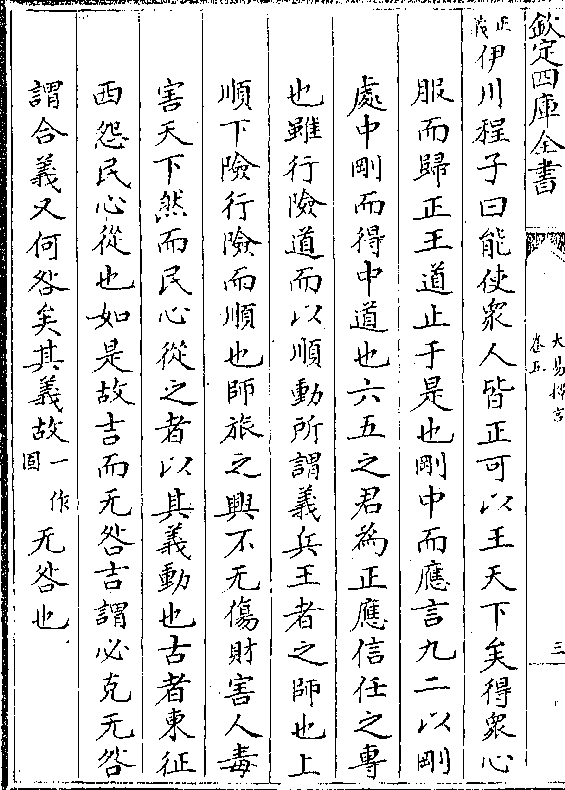 欽定四庫全書
大易擇言
卷五
三
正義伊川程子曰能使衆人皆正可以王天下矣得衆心
服而歸正王道止于是也剛中而應言九二以剛
處中剛而得中道也六五之君為正應信任之專
也雖行險道而以順動所謂義兵王者之師也上
順下險行險而順也師旅之興不无傷財害人毒
害天下然而民心從之者以其義動也古者東征
西怨民心從也如是故吉而无咎吉謂必克无咎
謂合義又何咎矣其義故一作固无咎也